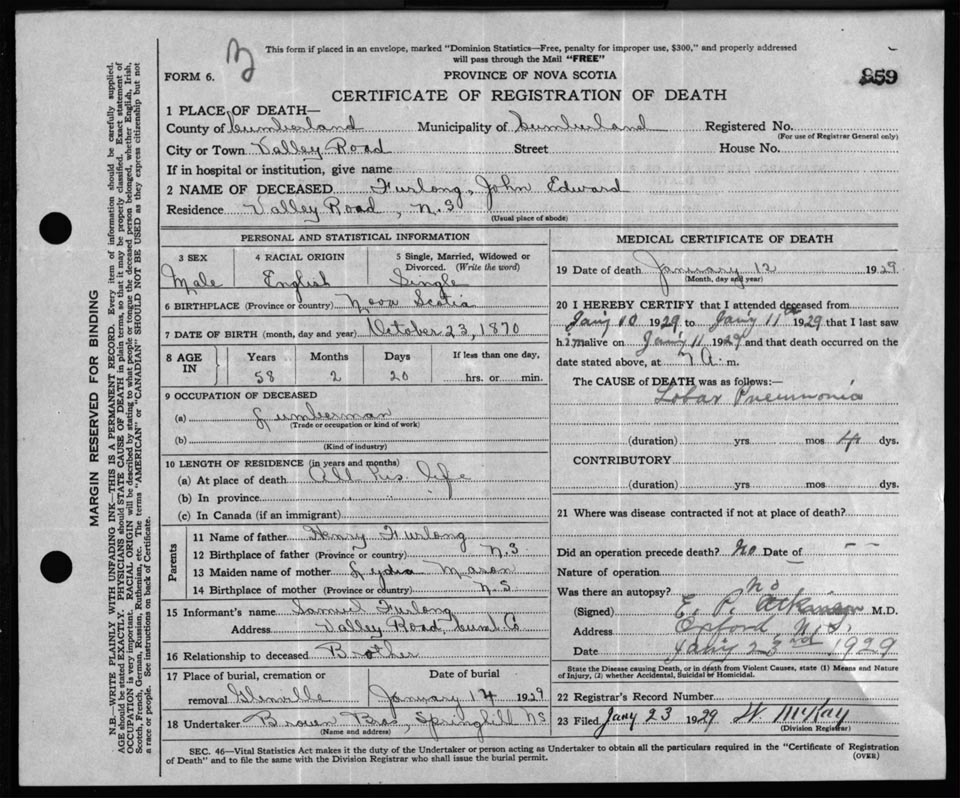 This form if placed in an envelope, marked "Dominion Statistics—Free, penalty for improper use, $300," and properly addressed
will pass through the Mail "FREE"
FORM 6.
PROVINCE OF NOVA SCOTIA
859
CERTIFICATE OF REGISTRATION OF DEATH
1 PLACE OF DEATH—
County of Cumberland Municipality of Cumberland Registered No.
(For use of Registrar General only)
City or Town Valley Road Street House No.
If in hospital or institution, give name
2 NAME OF DECEASED Furlong, John Edward
Residence Valley Road, N.S
(Usual place of abode)
PERSONAL AND STATISTICAL INFORMATION
3 SEX 4 RACIAL ORIGIN 5 Single, Married, Widowed or
Divorced. (Write the word)
Male English Single
6 BIRTHPLACE (Province or country) Nova Scotia
7 DATE OF BIRTH (month, day and year) October 23, 1870
8 AGE IN Years Months Days If less than one day,
58 2 20 hrs. or min.
9 OCCUPATION OF DECEASED
(a) Lumberman
(Trade or occupation or kind of work)
(b)
(Kind of industry)
10 LENGTH OF RESIDENCE (in years and months)
(a) At place of death All his life
(b) In province
(c) In Canada (if an immigrant)
Parents
11 Name of father Henry Furlong
12 Birthplace of father (Province or country) N.S
13 Maiden name of mother Lydia Mason
14 Birthplace of mother (Province or country) N.S.
15 Informant's name Samuel Furlong
Address Valley Road, Cum. Co
16 Relationship to deceased Brother
17 Place of burial, cremation or
removal Glenville
Date of burial
January 14 1929
18 Undertaker Brown Bros, Springhill NS
(Name and address)
MEDICAL CERTIFICATE OF DEATH
19 Date of death January 12 1929
(Month, day and year)
20 I HEREBY CERTIFY that I attended deceased from
Jan'y 10 1929 to Jan'y 11th 1929 that I last saw
him alive on Jan'y 11 1929 and that death occurred on the
date stated above, at 7 A. m.
The CAUSE of DEATH was as follows:—
Lobar Pneumonia
(duration) yrs. mos 4 dys.
CONTRIBUTORY
(duration) yrs. mos. dys.
21 Where was disease contracted if not at place of death?
Did an operation precede death? No Date of — —
Nature of operation
Was there an autopsy? No
(Signed) E. P. Atkinson M.D.
Address Oxford, N.S,
Date Jan'y 23rd 1929
State the Disease causing Death, or in death from Violent Causes, state (1) Means and Nature
of Injury, (2) whether Accidental, Suicidal or Homicidal.
22 Registrar's Record Number
23 Filed Jany 23 1929 W. McKay
(Division Registrar)
SEC. 46—Vital Statistics Act makes it the duty of the Undertaker or person acting as Undertaker to obtain all the particulars required in the "Certificate of Registration
of Death" and to file the same with the Division Registrar who shall issue the burial permit.
(OVER)
MARGIN RESERVED FOR BINDING
N.B.—WRITE PLAINLY WITH UNFADING INK—THIS IS A PERMANENT RECORD. Every item of information should be carefully supplied.
AGE should be stated EXACTLY. PHYSICIANS should STATE CAUSE OF DEATH in plain terms, so that it may be properly classified. Exact statement of
OCCUPATION is very important. RACIAL ORIGIN will be described by stating to what people or tongue the deceased person belonged, whether English, Irish,
Scotch, French, German, Russian, Ruthenian, etc. The terms "AMERICAN" or "CANADIAN" SHOULD NOT BE USED as they express citizenship but not
a race or people. See instructions on back of Certificate.